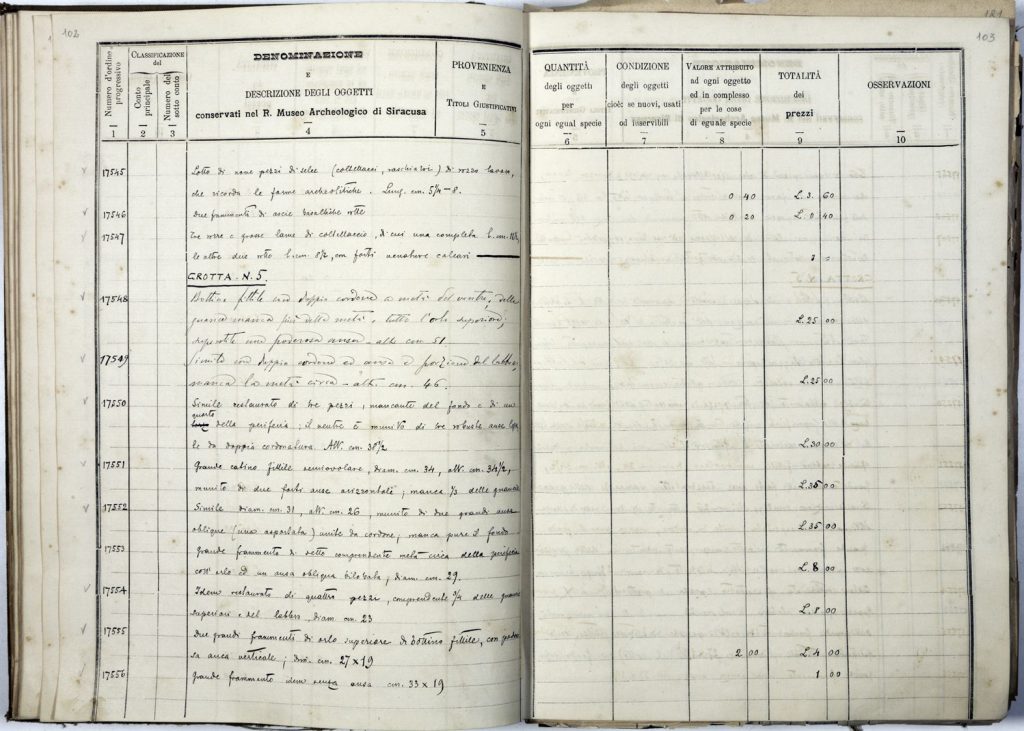 102
Numero d'ordine progressivo
CLASSIFICAZIONE
del
Conto principale
Numero del sotto conto
DENOMINAZIONE
E
DESCRIZIONE DEGLI OGGETTI
conservati nel R. Museo Archeologico di Siracusa
PROVENIENZA
E
TITOLI GIUSTIFICATIVI
1 2 3 4 5
17545 Lotto di nove pezzi di selce (coltellacci, raschiatoi) di rozzo lavoro,
che ricorda le forme archeolitiche. Lung. cm. 5 1/2 - 8.
17546 Due frammenti di ascie basaltiche rotte
17547 Tre rozze e grosse lame di coltellaccio, di cui una completa l. cm.
le altre due rotte l. cm. 8 1/2, con forti venature calcari
GROTTA N. 5.
17548 Bottino fittile con doppio cordone a metà del ventre, della
quale manca più della metà, tutto l'orlo superiore;
superstite una poderosa ansa - alt. cm 51.
17549 Simile con doppio cordone ed ansa e porzione del labbro,
manca la metà circa - alt. cm. 46.
17550 Simile restaurato di tre pezzi, mancante del fondo e di un
quarto della periferia; il ventre è munito di tre robuste anse
le da doppia cordonatura. Alt. cm. 38 1/2
17551 Grande catino fittile semiovolare, diam. cm. 34, alt. cm. 34 1/2,
munito di due forti anse orizzontali; manca 1/3 delle guancie
17552 Simile diam. cm. 31, alt. cm. 26, munito di due grandi anse
oblique (una asportata) unite da cordone; manca pure il fondo
17553 Grande frammento di detto comprendente metà circa della periferia
coll'orlo ed un ansa obliqua bilobata; diam. cm. 29.
17554 Idem restaurato di quattro pezzi, comprendente 3/4 delle guancie
superiori e del labbro, diam. cm. 23
17555 Due grandi frammenti di orlo superiore di bottino fittile, con
sa ansa verticale; dim. cm. 27 x 19
17556 Grande frammento idem senza ansa cm. 33 x 19
121
103
QUANTITÀ
degli oggetti
per
ogni egual specie
CONDIZIONE
degli oggetti
cioè: se nuovi, usati
od inservibili
VALORE ATTRIBUITO
ad ogni oggetto
ed in complesso
per le cose
di eguale specie
TOTALITÀ
dei
prezzi
OSSERVAZIONI
6 7 8 9 10
0 40 L. 3. 60
0 20 L. 0 40
L. 25 00
L. 25 00
L. 30 00
L. 35 00
L. 35 00
L. 8 00
L. 8 00
2 00 L. 4 00
1 00